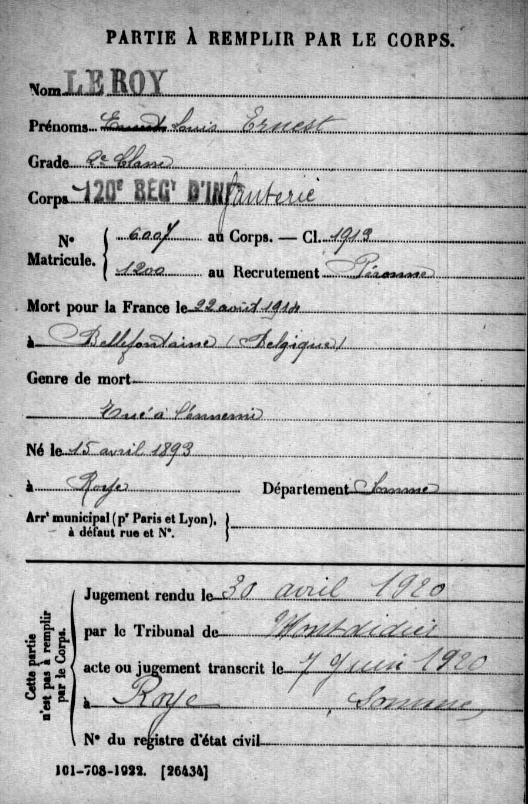 PARTIE À REMPLIR PAR LE CORPS.
Nom LEROY
Prénoms Ernest Louis Ernest
Grade 2e Classe
Corps 120e REGt D'INFanterie
No Matricule. { 6007 au Corps. — Cl. 1913
1200 au Recrutement Péronne
Mort pour la France le 22 août 1914
à Bellefontaine (Belgique)
Genre de mort
Tué à l'ennemi
Né le 15 avril 1893
à Roye Département Somme
Arrt municipal (pr Paris et Lyon), }
à défaut rue et No.
Cette partie n'est pas à remplir par le Corps.
Jugement rendu le 30 avril 1920
par le Tribunal de Montdidier
acte ou jugement transcrit le 7 Juin 1920
à Roye, Somme
No du registre d'état civil
101-708-1922. [26434]